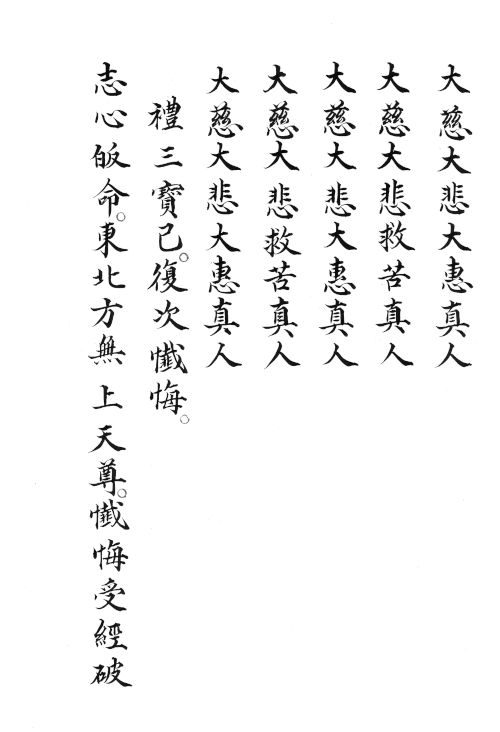 大慈大悲大惠真人
大慈大悲救苦真人
大慈大悲大惠真人
大慈大悲救苦真人
大慈大悲大惠真人
禮三寳已。復次懺悔。
志心皈命。東北方無上天尊。懺悔受經破